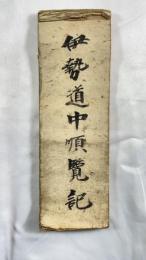 伊勢道中順覧記